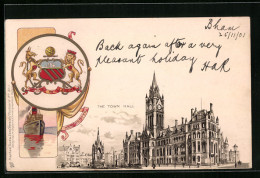 Bhan
25/11/01
Back again after a very
pleasant holiday
HdR
THE TOWN HALL